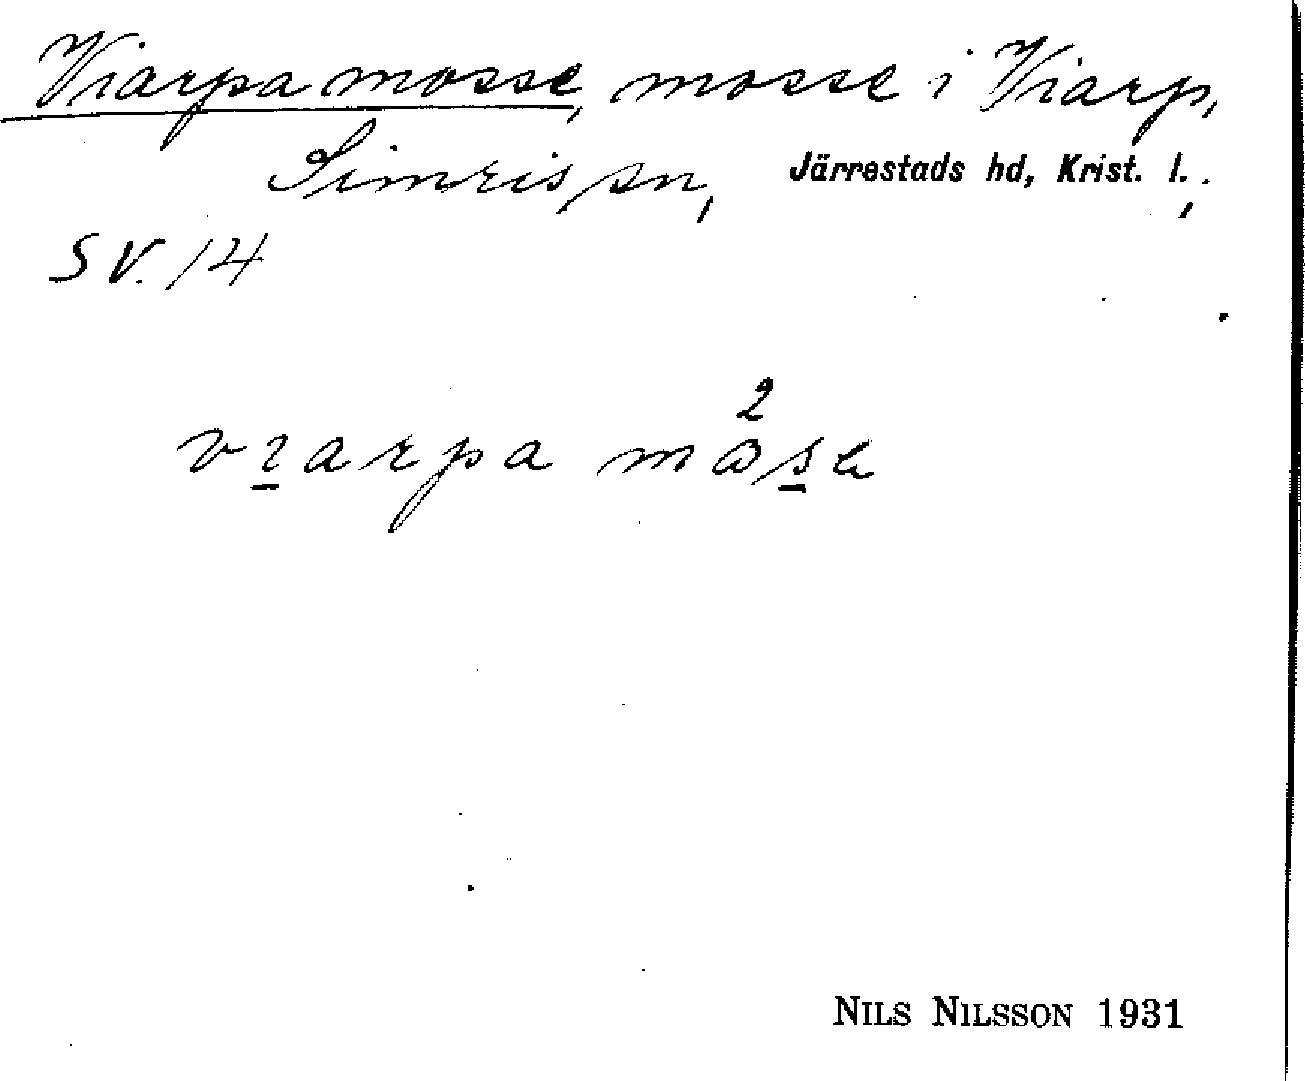 Viarpa mosse, mosse i Viarp,
Simris sn, Järrestads hd, Krist. l.,
SV. 14
2
vıarpa måsa
NILS NILSSON 1931